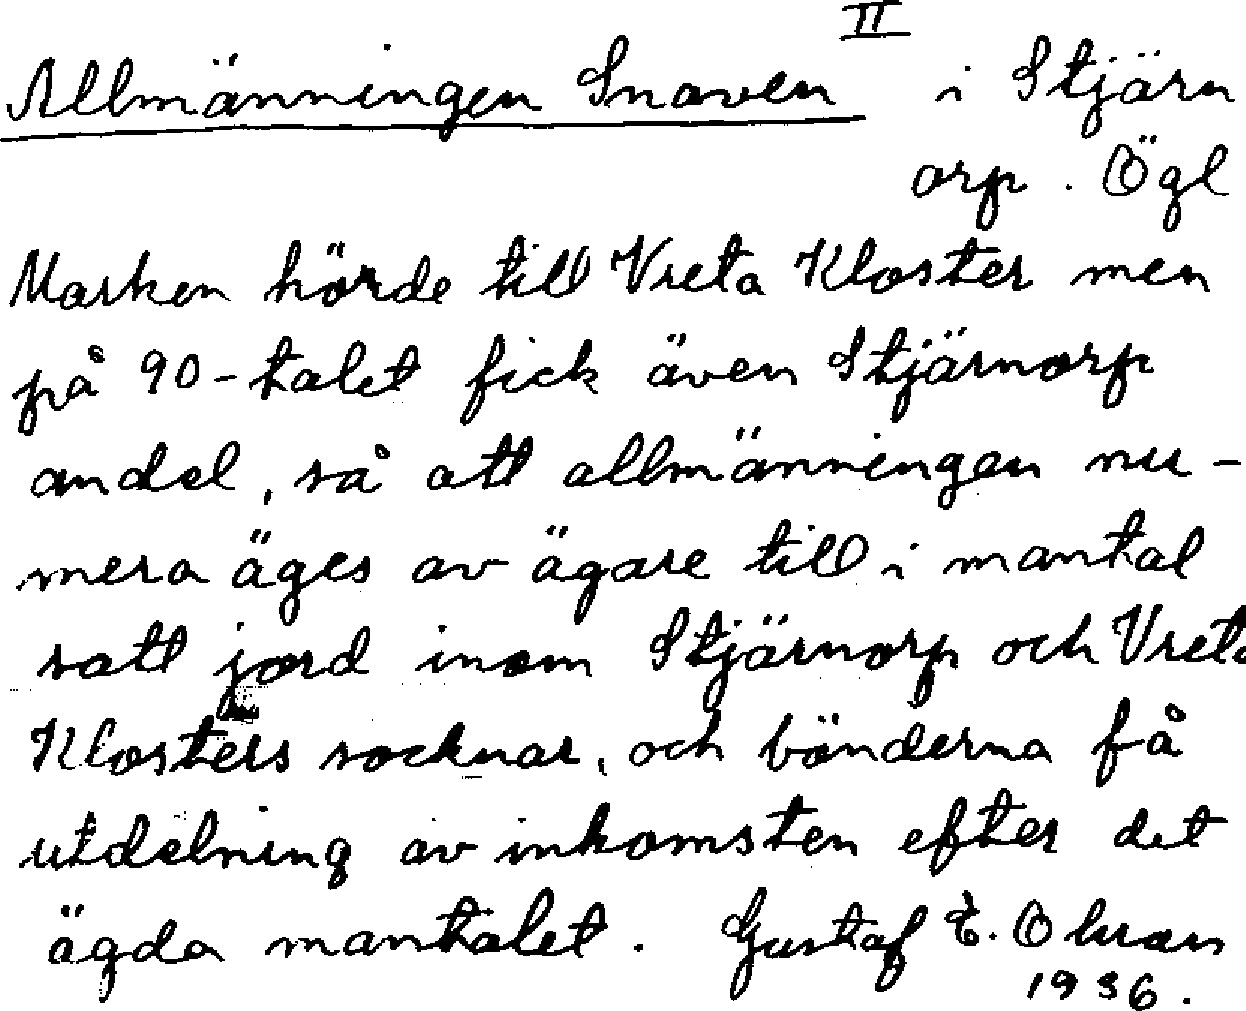 II
Allmänningen Snaven i Stjärn
orp. Ögl
Marken hörde till Vreta Kloster men
på 90-talet fick även Stjärnorp
andel, så att allmänningen nu-
mera äges av ägare till i mantal
satt jord inom Stjärnorp och Vreta
Klosters socknar, och bönderna få
utdelning av inkomsten efter det
ägda mantalet. Gustaf E.
1936.